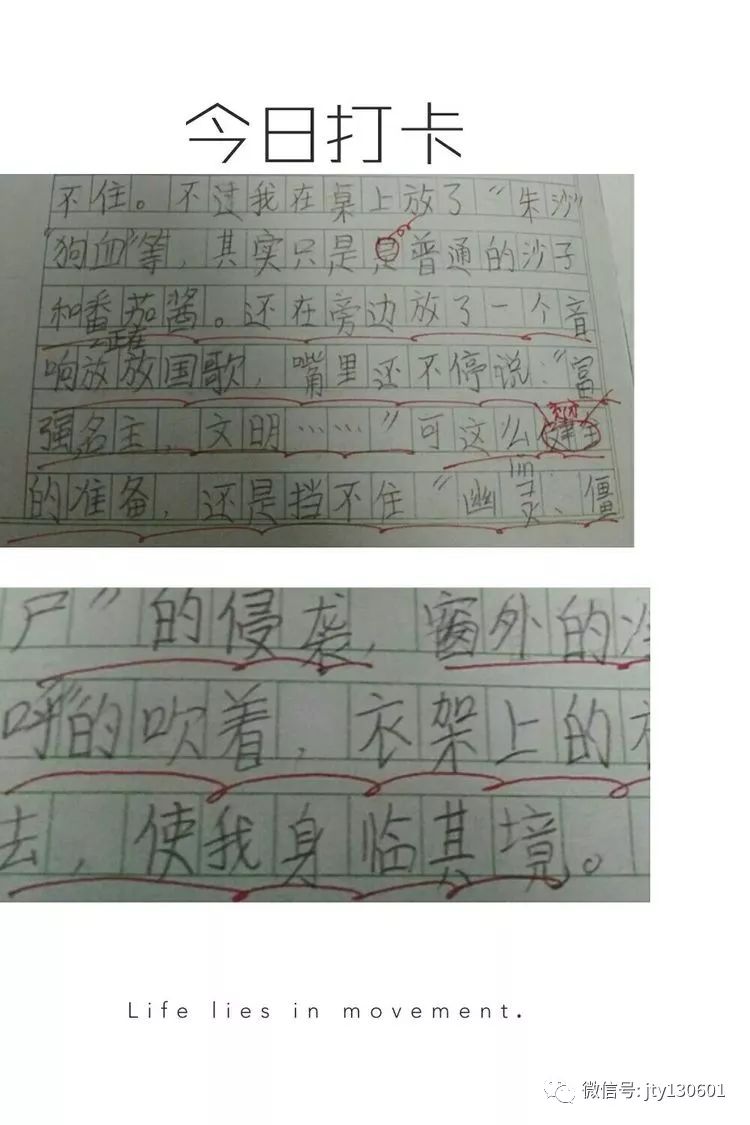 今日打卡
不住。不过我在桌上放了“朱沙”
“狗血”等，其实只是是普通的沙子
和番茄酱。还在旁边放了一个音
正在
响放放国歌，嘴里还不停说：“富
强名主，文明……”可这么
的准备，还是挡不住“幽灵、僵
尸”的侵袭，窗外的
呼”的吹着，衣架上的
去，使我身临其境。
Life lies in movement.
微信号: jty130601